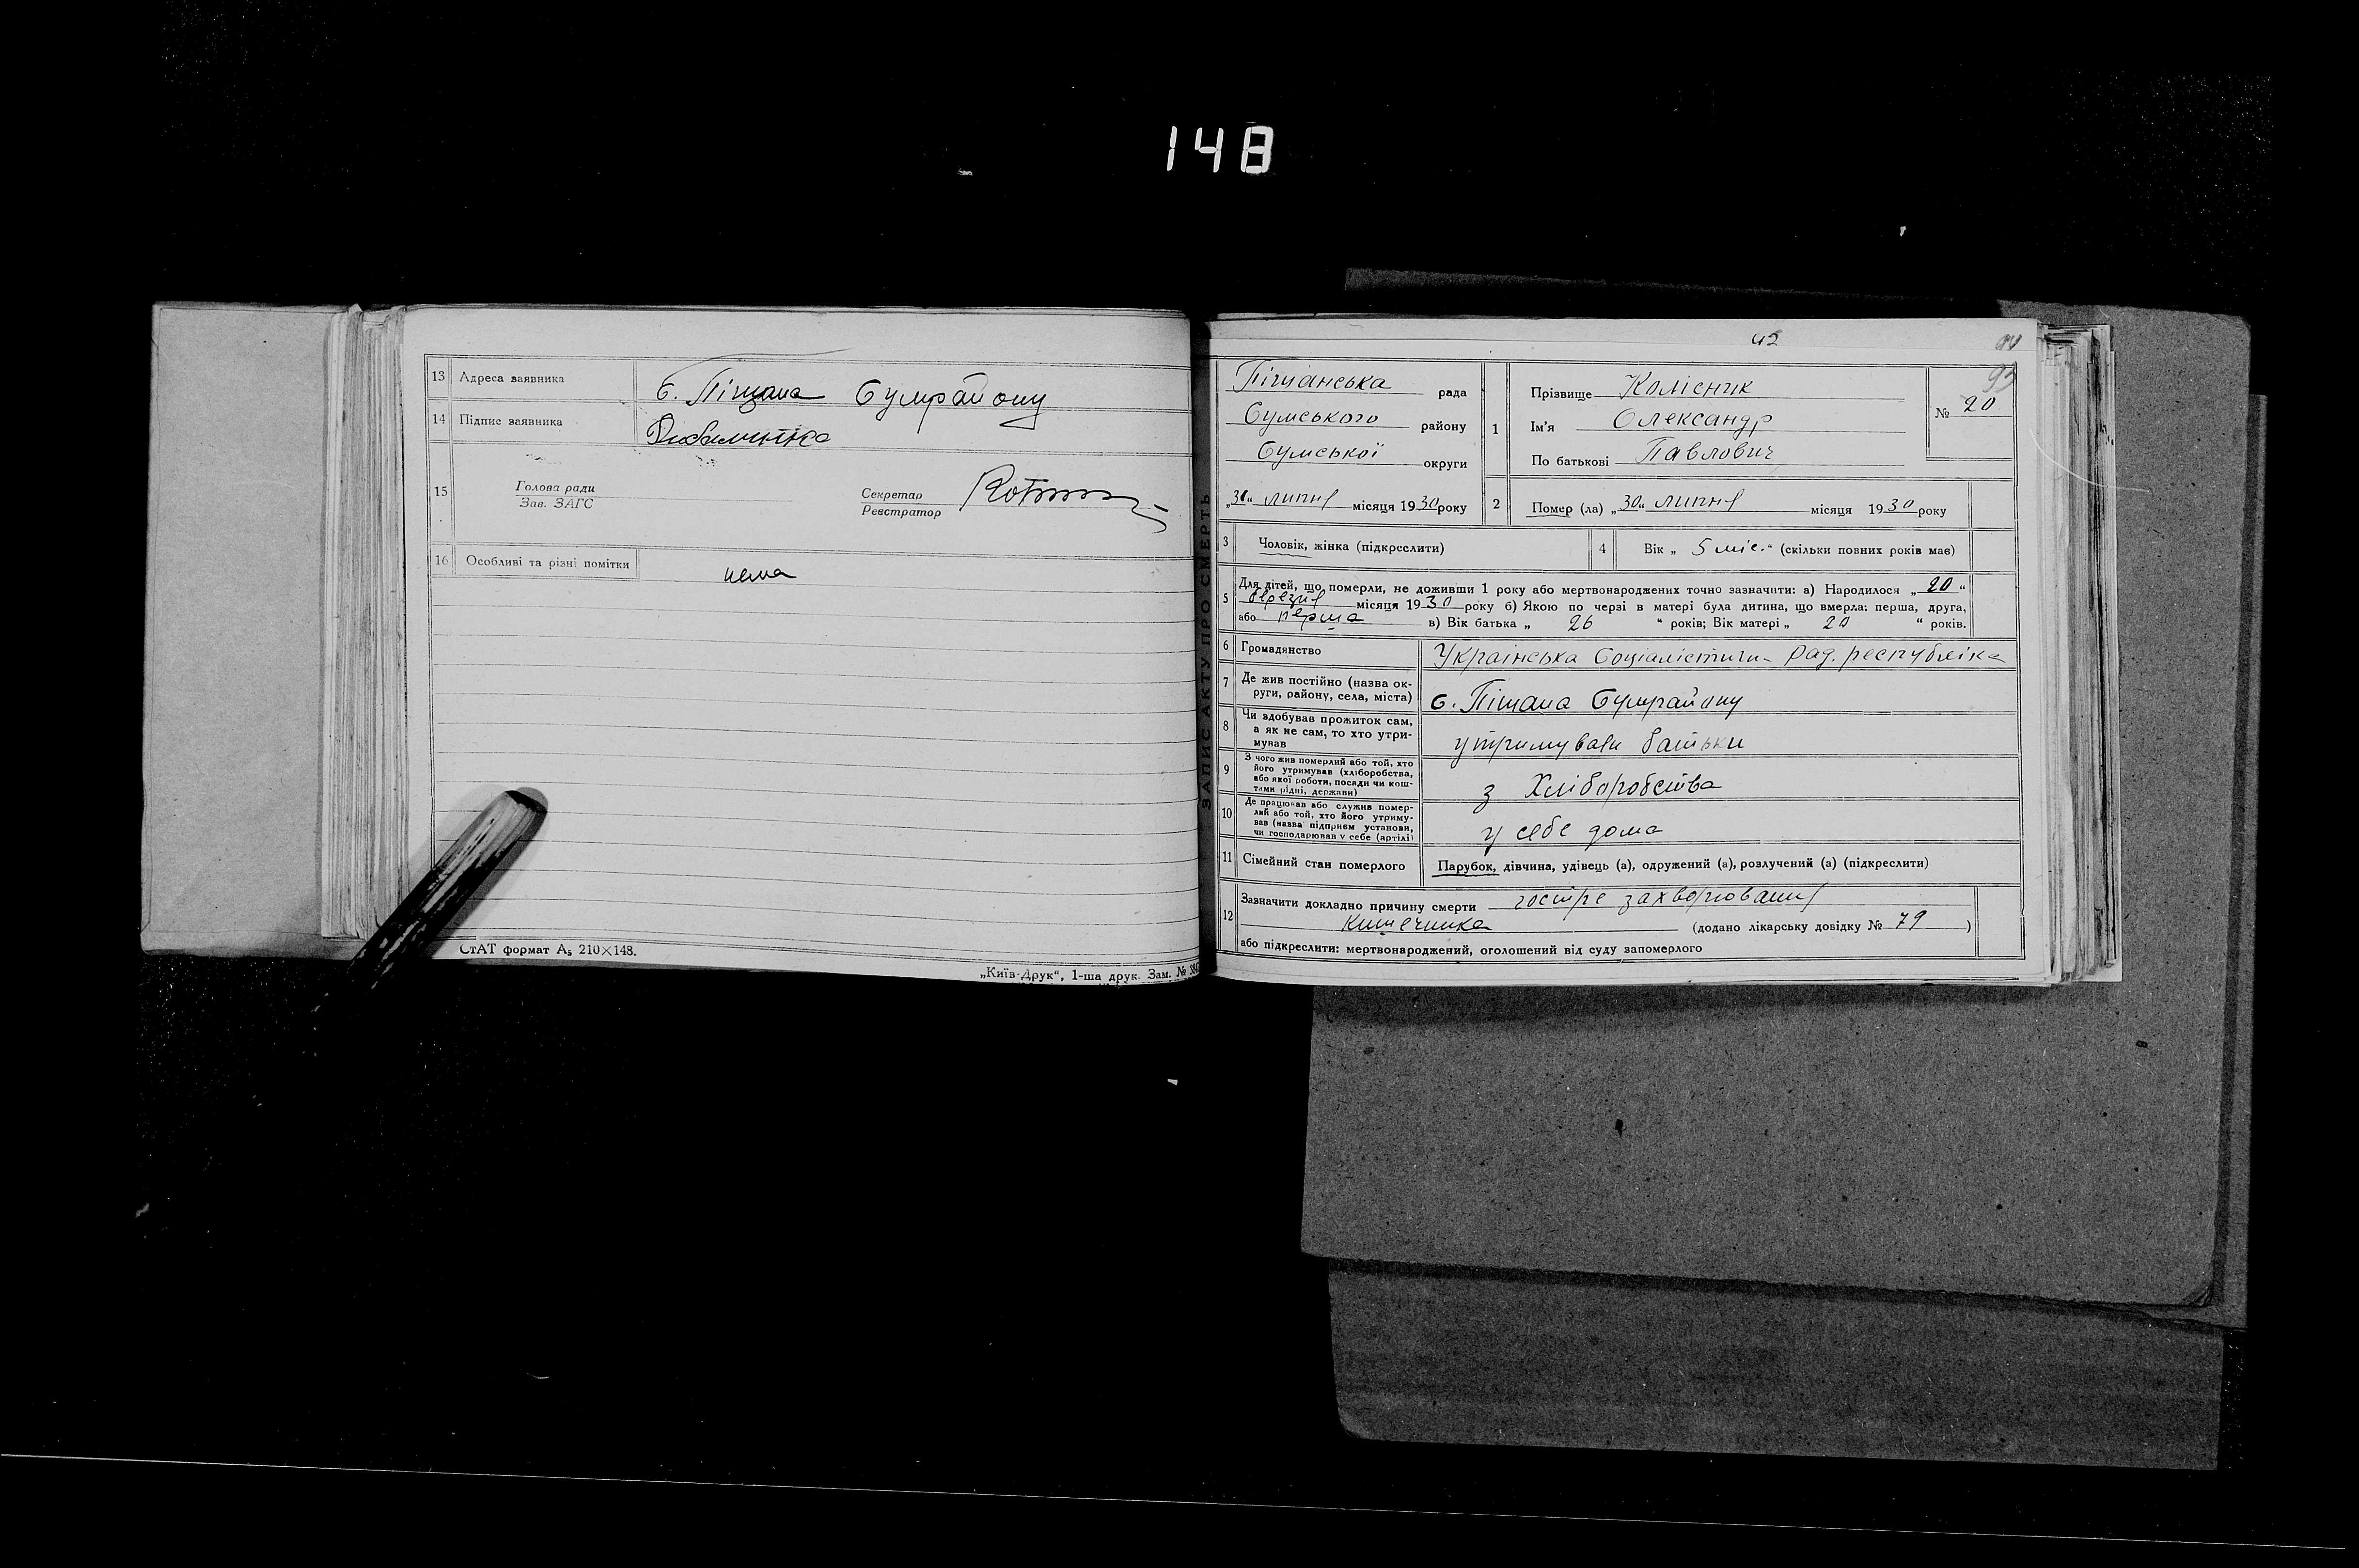 148
13 Адреса заявника с. Піщана Сумрайону
14 Підпис заявника
15 Голова ради
Зав. ЗАГС
Секретар
Реєстратор
16 Особливі та різні помітки нема
СтАТ формат А₅ 210×148.
„Київ-Друк“, 1-ша друк. Зам. №
ЗАПИС АКТУ ПРО СМЕРТЬ
42
Піщанська рада
Сумського району
Сумської округи
„31“ липня місяця 1930 року
1 Прізвище Колісник
Ім'я Олександр
По батькові Павлович
№ 20
2 Помер (ла) „30“ липня місяця 1930 року
3 Чоловік, жінка (підкреслити)
4 Вік „ 5 міс.“ (скільки повних років має)
5 Для дітей, що померли, не доживши 1 року або мертвонароджених точно зазначити: а) Народилося „20“
березня місяця 1930 року б) Якою по черзі в матері була дитина, що вмерла: перша, друга,
або перша в) Вік батька „ 26 “ років; Вік матері „ 20 “ років.
6 Громадянство Українська Соціалістичн. Рад. республіка
7 Де жив постійно (назва ок-
руги, району, села, міста) с. Піщана Сумрайону
8 Чи здобував прожиток сам,
а як не сам, то хто утри-
мував утримували батьки
9 З чого жив померлий або той, хто
його утримував (хліборобства,
або якої роботи, посади чи кош-
тами рідні, держави) з Хліборобства
10 Де працював або служив помер-
лий або той, хто його утриму-
вав (назва підприєм установи,
чи господарював у себе (артілі) у себе дома
11 Сімейний стан померлого Парубок, дівчина, удівець (а), одружений (а), розлучений (а) (підкреслити)
12 Зазначити докладно причину смерти гостре захворювання
кишечника (додано лікарську довідку № 79 )
або підкреслити: мертвонароджений, оголошений від суду запомерлого